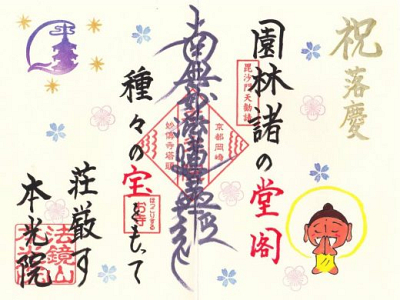 祝
落慶
園林諸の堂閣
毘沙門天勧請
京都岡崎
南無妙法蓮華経
妙傳寺塔頭
種々の宝をもって
お寺
荘厳す
本光院
法鏡山
本光院